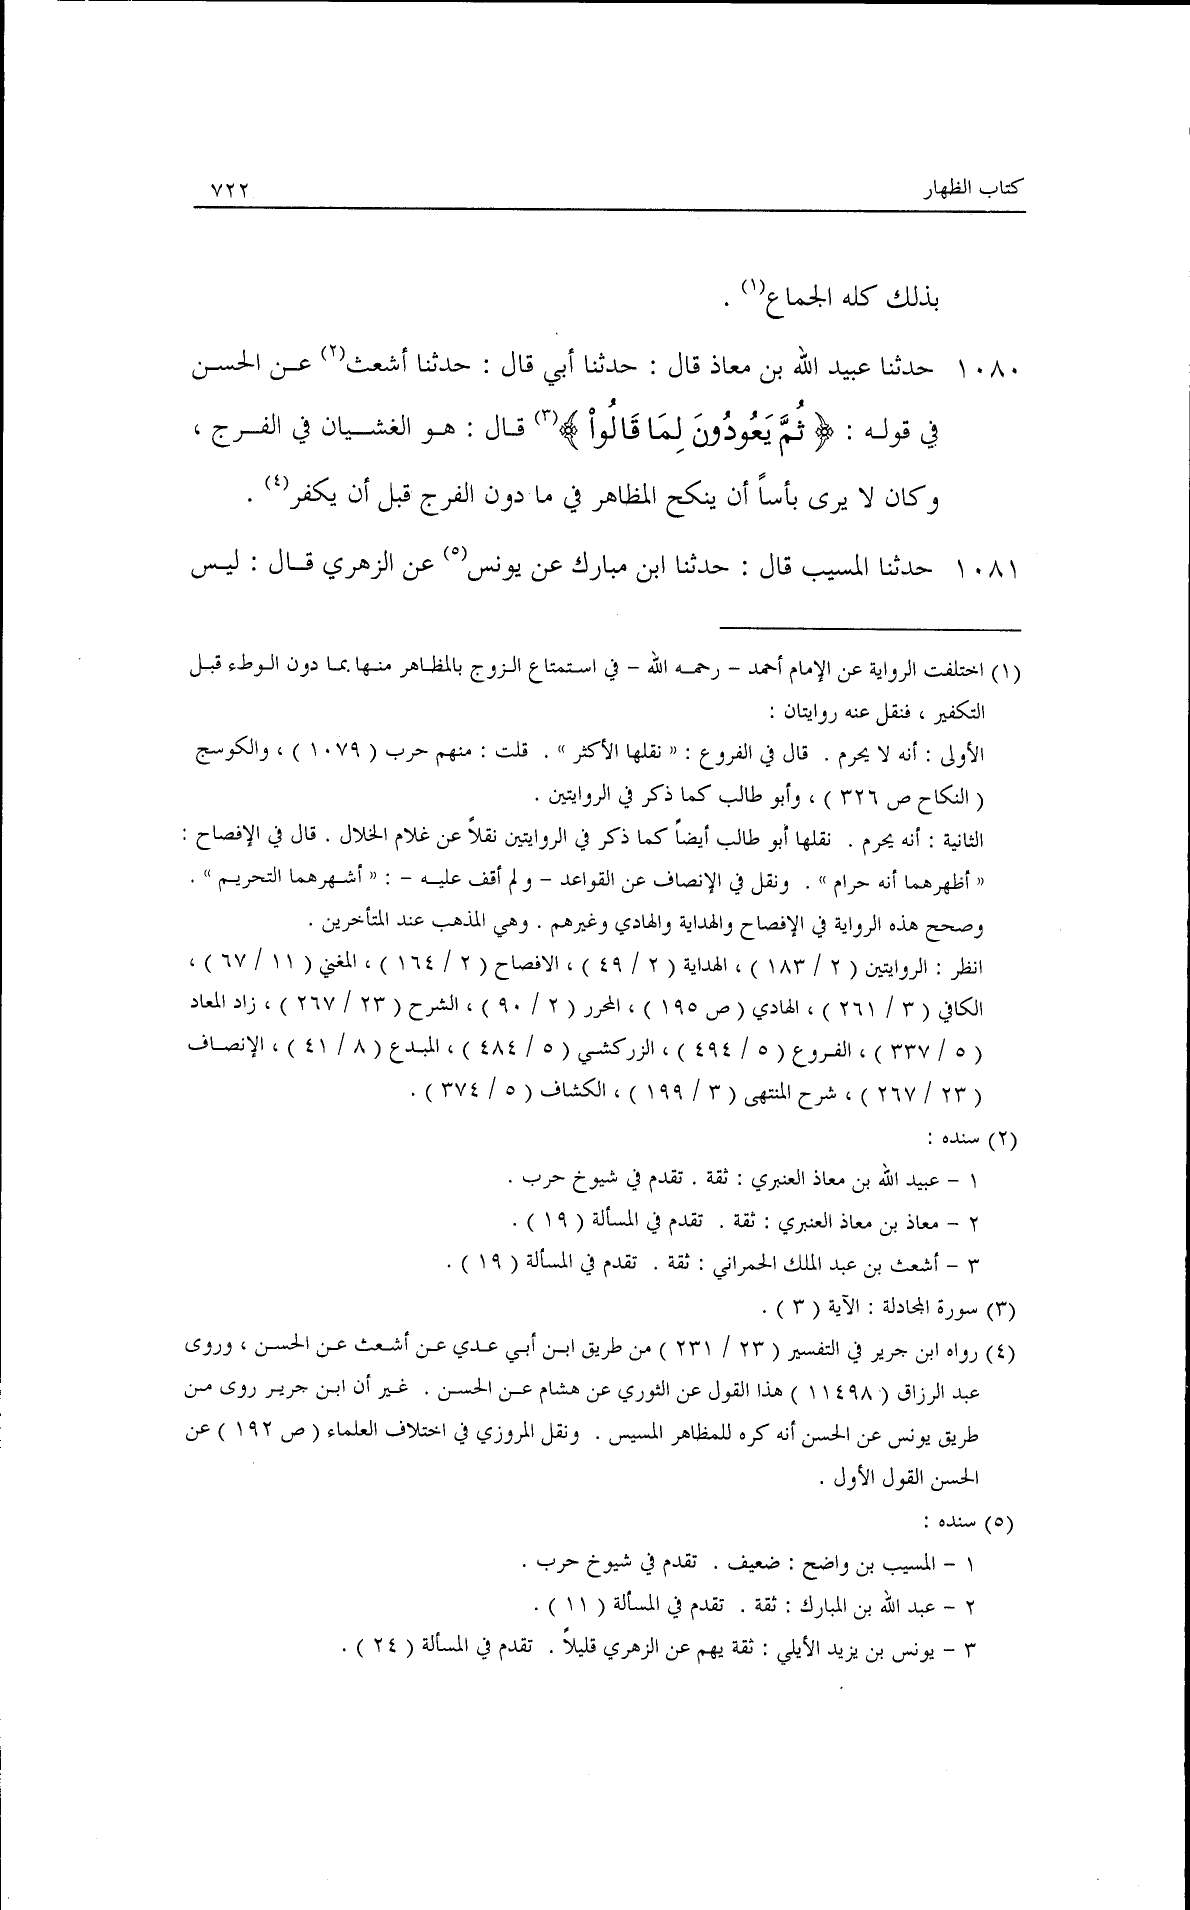 كتاب الظهار ٧٢٢
بذلك كله الجماع(١) .
١٠٨٠ حدثنا عبيد الله بن معاذ قال : حدثنا أبي قال : حدثنا أشعث(٢) عن الحسن
في قوله : ﴿ ثُمَّ يَعُودُونَ لِمَا قَالُواْ ﴾(٣) قال : هو الغشيان في الفرج ،
وكان لا يرى بأساً أن ينكح المظاهر في ما دون الفرج قبل أن يكفر(٤) .
١٠٨١ حدثنا المسيب قال : حدثنا ابن مبارك عن يونس(٥) عن الزهري قال : ليس
(١) اختلفت الرواية عن الإمام أحمد - رحمه الله - في استمتاع الزوج بالمظاهر منها بما دون الوطء قبل
التكفير ، فنقل عنه روايتان :
الأولى : أنه لا يحرم . قال في الفروع : « نقلها الأكثر » . قلت : منهم حرب ( ١٠٧٩ ) ، والكوسج
( النكاح ص ٣٢٦ ) ، وأبو طالب كما ذكر في الروايتين .
الثانية : أنه يحرم . نقلها أبو طالب أيضاً كما ذكر في الروايتين نقلاً عن غلام الخلال . قال في الإفصاح :
« أظهرهما أنه حرام » . ونقل في الإنصاف عن القواعد - ولم أقف عليه - : « أشهرهما التحريم » .
وصحح هذه الرواية في الإفصاح والهداية والهادي وغيرهم . وهي المذهب عند المتأخرين .
انظر : الروايتين ( ٢ / ١٨٣ ) ، الهداية ( ٢ / ٤٩ ) ، الافصاح ( ٢ / ١٦٤ ) ، المغني ( ١١ / ٦٧ ) ،
الكافي ( ٣ / ٢٦١ ) ، الهادي ( ص ١٩٥ ) ، المحرر ( ٢ / ٩٠ ) ، الشرح ( ٢٣ / ٢٦٧ ) ، زاد المعاد
( ٥ / ٣٣٧ ) ، الفروع ( ٥ / ٤٩٤ ) ، الزركشي ( ٥ / ٤٨٤ ) ، المبدع ( ٨ / ٤١ ) ، الإنصاف
( ٢٣ / ٢٦٧ ) ، شرح المنتهى ( ٣ / ١٩٩ ) ، الكشاف ( ٥ / ٣٧٤ ) .
(٢) سنده :
١ - عبيد الله بن معاذ العنبري : ثقة . تقدم في شيوخ حرب .
٢ - معاذ بن معاذ العنبري : ثقة . تقدم في المسألة ( ١٩ ) .
٣ - أشعث بن عبد الملك الحمراني : ثقة . تقدم في المسألة ( ١٩ ) .
(٣) سورة المجادلة : الآية ( ٣ ) .
(٤) رواه ابن جرير في التفسير ( ٢٣ / ٢٣١ ) من طريق ابن أبي عدي عن أشعث عن الحسن ، وروى
عبد الرزاق ( ١١٤٩٨ ) هذا القول عن الثوري عن هشام عن الحسن . غير أن ابن جرير روى من
طريق يونس عن الحسن أنه كره للمظاهر المسيس . ونقل المروزي في اختلاف العلماء ( ص ١٩٢ ) عن
الحسن القول الأول .
(٥) سنده :
١ - المسيب بن واضح : ضعيف . تقدم في شيوخ حرب .
٢ - عبد الله بن المبارك : ثقة . تقدم في المسألة ( ١١ ) .
٣ - يونس بن يزيد الأيلي : ثقة يهم عن الزهري قليلاً . تقدم في المسألة ( ٢٤ ) .